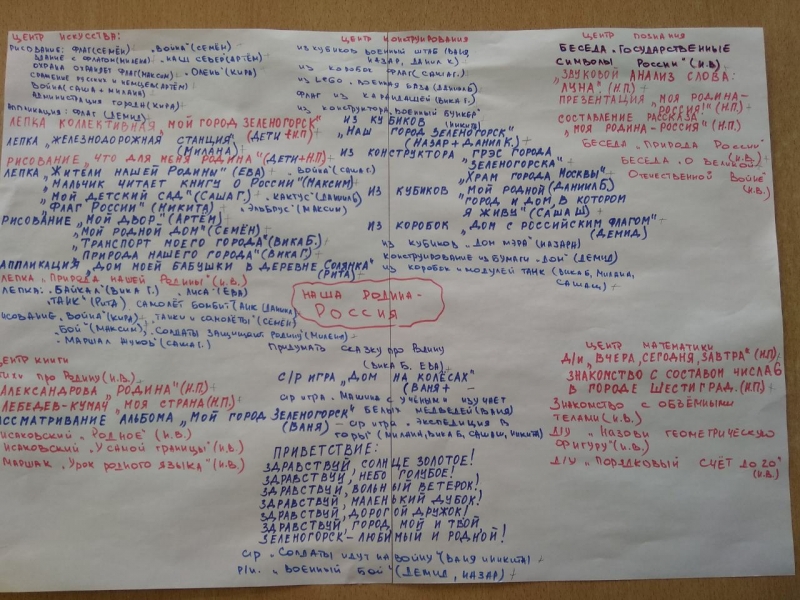 ЦЕНТР ИСКУССТВА:
РИСОВАНИЕ: ФЛАГ(СЕМЁН) „ВОЙНА"(СЕМЁН)
ЗДАНИЕ С ФЛАГОМ(МИЛЕНА) „НАШ СЕВЕР(АРТЁМ)
ОХРАНА ОХРАНЯЕТ ФЛАГ(МАКСИМ) „ОЛЕНЬ"(КИРА)
СРАЖЕНИЕ РУССКИХ И НЕМЦЕВ(АРТЁМ)
ВОЙНА(САША+МИЛАНА)
АДМИНИСТРАЦИЯ ГОРОДА(КИРА)
АППЛИКАЦИЯ: ФЛАГ (ДЕМИД)
ЛЕПКА КОЛЛЕКТИВНАЯ „МОЙ ГОРОД ЗЕЛЕНОГОРСК"
ЛЕПКА „ЖЕЛЕЗНОДОРОЖНАЯ СТАНЦИЯ" (ДЕТИ+Н.П)
(МИЛАНА)
РИСОВАНИЕ „ЧТО ДЛЯ МЕНЯ РОДИНА"(ДЕТИ+Н.П)
ЛЕПКА „ЖИТЕЛИ НАШЕЙ РОДИНЫ" (ЕВА) „ВОЙНА"(САША Г.)
„МАЛЬЧИК ЧИТАЕТ КНИГУ О РОССИИ"(МАКСИМ)
„МОЙ ДЕТСКИЙ САД"(САША Г.) „КАКТУС"(ДАНИИЛ Б)
„ФЛАГ РОССИИ" (НИКИТА) „ЭЛЬБРУС"(МАКСИМ)
РИСОВАНИЕ „МОЙ ДВОР" (АРТЁМ)
„МОЙ РОДНОЙ ДОМ"(СЕМЁН)
„ТРАНСПОРТ МОЕГО ГОРОДА"(ВИКА Б.)
„ПРИРОДА НАШЕГО ГОРОДА"(ВИКА Г)
АППЛИКАЦИЯ „ДОМ МОЕЙ БАБУШКИ В ДЕРЕВНЕ СОЛЯНКА"
(РИТА)
ЛЕПКА „ПРИРОДА НАШЕЙ РОДИНЫ"(И.В.)
ЛЕПКА: „БАЙКАЛ"(ВИКА Г.) „ЛИСА"(ЕВА)
„ТАНК"(РИТА) САМОЛЁТ БОМБИТ
ИСОВАНИЕ „ВОЙНА"(КИРА) „ТАНКИ И САМОЛЁТЫ"(СЕМЁН)
„БОЙ"(МАКСИМ), „СОЛДАТЫ ЗАЩИЩАЮТ РОДИНУ"(МИЛЕНА)
„МАРШАЛ ЖУКОВ"(САША Г.)
ЦЕНТР КОНСТРУИРОВАНИЯ
ИЗ КУБИКОВ ВОЕННЫЙ ШТАБ (ВАНЯ,
НАЗАР, ДАНИЛ К.)
ИЗ КОРОБОК ФЛАГ(САША Г.)
ИЗ LEGO „ВОЕННАЯ БАЗА (ДАНИИЛ Б)
ФЛАГ ИЗ КАРАНДАШЕЙ (ВИКА Г.)
ИЗ КОНСТРУКТОРА „ВОЕННЫЙ БУНКЕР"
(НИКИТА)
ИЗ КУБИКОВ
„НАШ ГОРОД ЗЕЛЕНОГОРСК"
(НАЗАР+ДАНИЛ К.)
ИЗ КОНСТРУКТОРА „ГРЭС ГОРОДА
ЗЕЛЕНОГОРСКА"
„ХРАМ ГОРОДА МОСКВЫ"
ИЗ КУБИКОВ „МОЙ РОДНОЙ(ДАНИИЛ Б)
„ГОРОД И ДОМ, В КОТОРОМ
Я ЖИВУ" (САША Ш)
ИЗ КОРОБОК „ДОМ С РОССИЙСКИМ ФЛАГОМ"
(ДЕМИД)
ИЗ КУБИКОВ „ДОМ МЭРА"(НАЗАРИ)
КОНСТРУИРОВАНИЕ ИЗ БУМАГИ „ДОМ" (ДЕМИД)
ИЗ КОРОБОК И МОДУЛЕЙ ТАНК (ВИКА Б, МИЛАНА,
САША Ш)
ЦЕНТР ПОЗНАНИЯ
БЕСЕДА „ГОСУДАРСТВЕННЫЕ
СИМВОЛЫ РОССИИ"(И.В)
„ЗВУКОВОЙ АНАЛИЗ СЛОВА:
ЛУНА" (Н.П)
ПРЕЗЕНТАЦИЯ „МОЯ РОДИНА-
РОССИЯ!" (Н.П.)
СОСТАВЛЕНИЕ РАССКАЗА
„МОЯ РОДИНА-РОССИЯ" (Н.П)
БЕСЕДА „ПРИРОДА РОССИИ"
(И.В.)
БЕСЕДА „О ВЕЛИКОЙ
ОТЕЧЕСТВЕННОЙ ВОЙНЕ"
(И.В.)
НАША РОДИНА-
РОССИЯ
ЦЕНТР КНИГИ
РО РОДИНУ(И.В.)
АЛЕКСАНДРОВА „РОДИНА"(Н.П.)
ЛЕБЕДЕВ-КУМАЧ „МОЯ СТРАНА(Н.П.)
АССМАТРИВАНИЕ АЛЬБОМА „МОЙ ГОРОД ЗЕЛЕНОГОРСК"
(ВАНЯ)
ИСАКОВСКИЙ „РОДНОЕ"(И.В)
ИСАКОВСКИЙ „У САМОЙ ГРАНИЦЫ"(И.В)
МАРШАК „УРОК РОДНОГО ЯЗЫКА"(И.В.)
ПРИДУМАТЬ СКАЗКУ ПРО РОДИНУ
(ВИКА Б. ЕВА)
С/Р ИГРА „ДОМ НА КОЛЁСАХ"
(ВАНЯ+
С/Р ИГРА „МАШИНА С УЧЁНЫМИ ИЗУЧАЕТ
БЕЛЫХ МЕДВЕДЕЙ(ВАНЯ)
С/Р ИГРА „ЭКСПЕДИЦИЯ В
ГОРЫ"(МИЛАНА, ВИКА Б, САША Ш, НИКИТА)
ПРИВЕТСТВИЕ:
ЗДРАВСТВУЙ, СОЛНЦЕ ЗОЛОТОЕ!
ЗДРАВСТВУЙ, НЕБО ГОЛУБОЕ!
ЗДРАВСТВУЙ, ВОЛЬНЫЙ ВЕТЕРОК!
ЗДРАВСТВУЙ, МАЛЕНЬКИЙ ДУБОК!
ЗДРАВСТВУЙ, ДОРОГОЙ ДРУЖОК!
ЗДРАВСТВУЙ, ГОРОД МОЙ И ТВОЙ,
ЗЕЛЕНОГОРСК-ЛЮБИМЫЙ И РОДНОЙ!
С/Р „СОЛДАТЫ ИДУТ НА ВОЙНУ"(ВАНЯ И НИКИТА)
Р/И. „ВОЕННЫЙ БОЙ"(ДЕМИД, НАЗАР)
ЦЕНТР МАТЕМАТИКИ
Д/И „ВЧЕРА, СЕГОДНЯ, ЗАВТРА"(Н.П)
ЗНАКОМСТВО С СОСТАВОМ ЧИСЛА 6
В ГОРОДЕ ШЕСТИГРАД.(Н.П)
ЗНАКОМСТВО С ОБЪЁМНЫМИ
ТЕЛАМИ(И.В.)
Д/У „НАЗОВИ ГЕОМЕТРИЧЕСКУЮ
ФИГУРУ"(И.В.)
Д/У „ПОРЯДКОВЫЙ СЧЁТ ДО 20"
(И.В.)